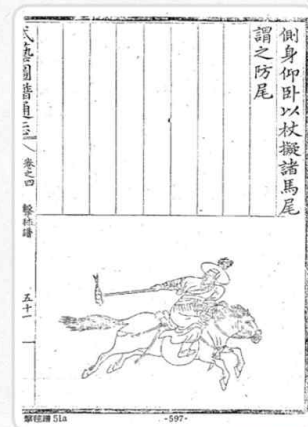 側身仰卧以杖擬諸馬尾
謂之防尾
武藝圖譜通志 卷之四 擊毬譜 五十一
擊毬譜 51a
-597-